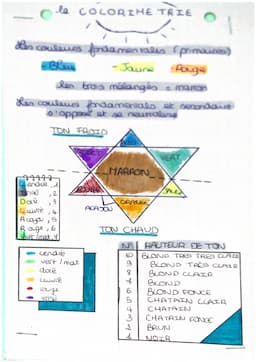 la COLORIMETRIE
Les couleurs fondamentales (primaires)
- Bleu - Jaune - Rouge
les trois mélangés = marron
Les couleurs fondamentales et secondaire
s'oppose et se neutralise
TON FROID
VERT
MARRON
ROUGE
JAUNE
ACAJOU
TON CHAUD
Cendré 1
Irisé 2
Doré 3
Cuivré 4
Acajou 5
Rouge 6
Vert/mat 7
cendré
vert / mat
doré
cuivré
rouge
N° HAUTEUR DE TON
10 BLOND TRÈS TRÈS CLAIR
9 BLOND TRÈS CLAIR
8 BLOND CLAIR
7 BLOND
6 BLOND FONCÉ
5 CHATAIN CLAIR
4 CHATAIN
3 CHATAIN FONCÉ
2 BRUN
1 NOIR